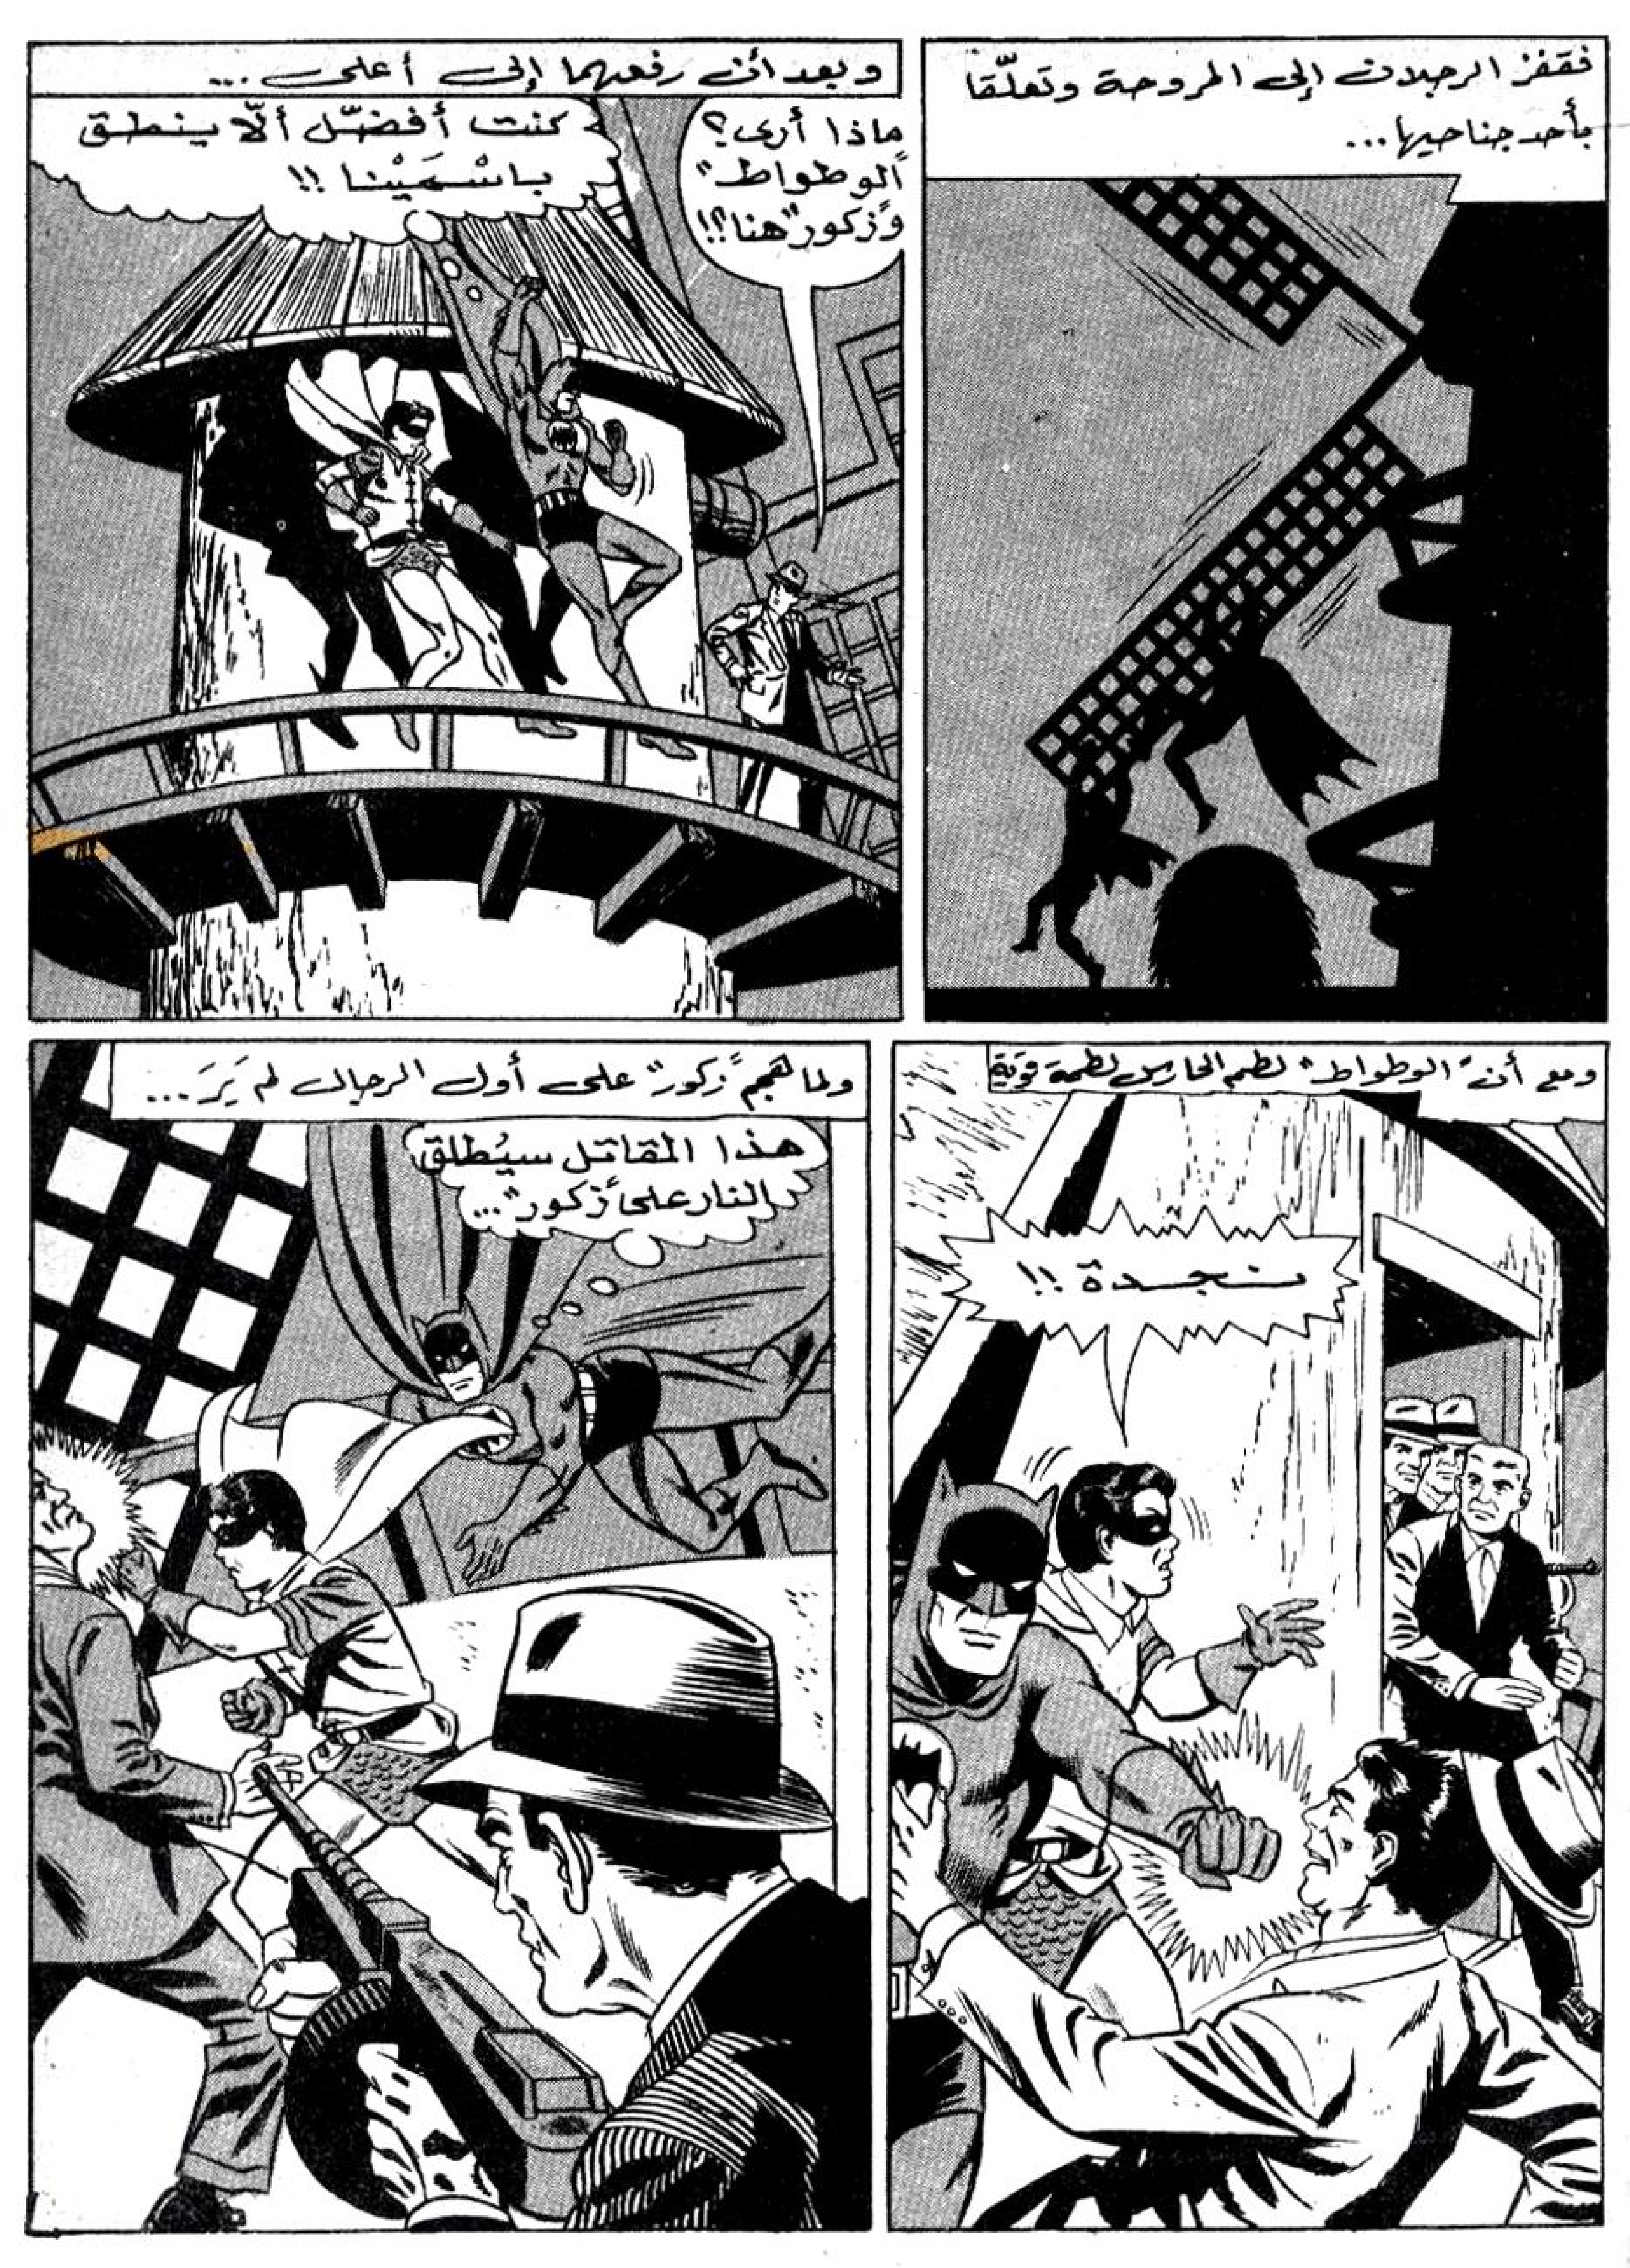 فقفز الرجلان إلى المروحة وتعلّقا
بأحد جناحيها...
وبعد أن رفعهما إلى أعلى ...
ماذا أرى؟
"الوطواط"
و"زكور" هنا؟!
كنت أفضّل ألّا ينطق
باسْمَيْنا !!
ومع أن "الوطواط" لطم الحارس لطمة قويّة
نجدة !!
ولما هجم "زكور" على أول الرجال لم يَرَ...
هذا المقاتل سيُطلق
النار على "زكور"...